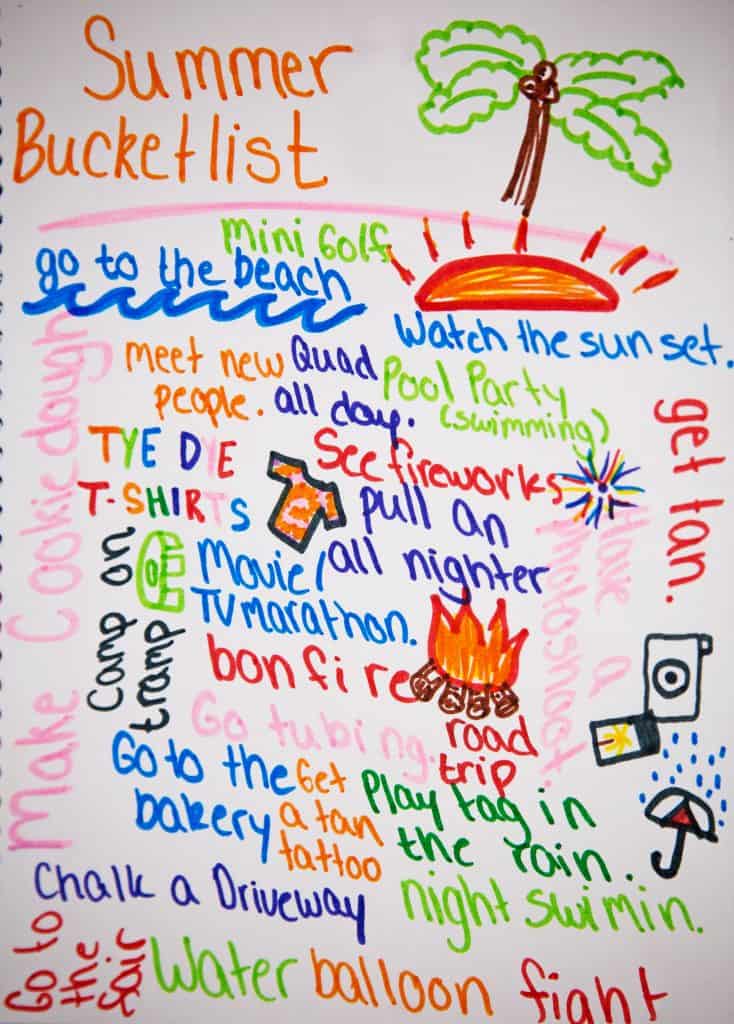 Summer
Bucketlist
mini Golf
go to the beach
Watch the sun set.
meet new
people.
Quad
all day.
Pool Party
(swimming)
get tan.
TYE DYE
T-SHIRTS
See fireworks
pull an
all nighter
Make Cookie dough
Camp on
tramp
Movie/
TV marathon.
Have a
photoshoot.
bonfire
Go tubing.
road
trip
Go to the
bakery
Get
a tan
tattoo
Play tag in
the rain.
Chalk a Driveway
night swimin.
Go to
the
fair
Water balloon fight